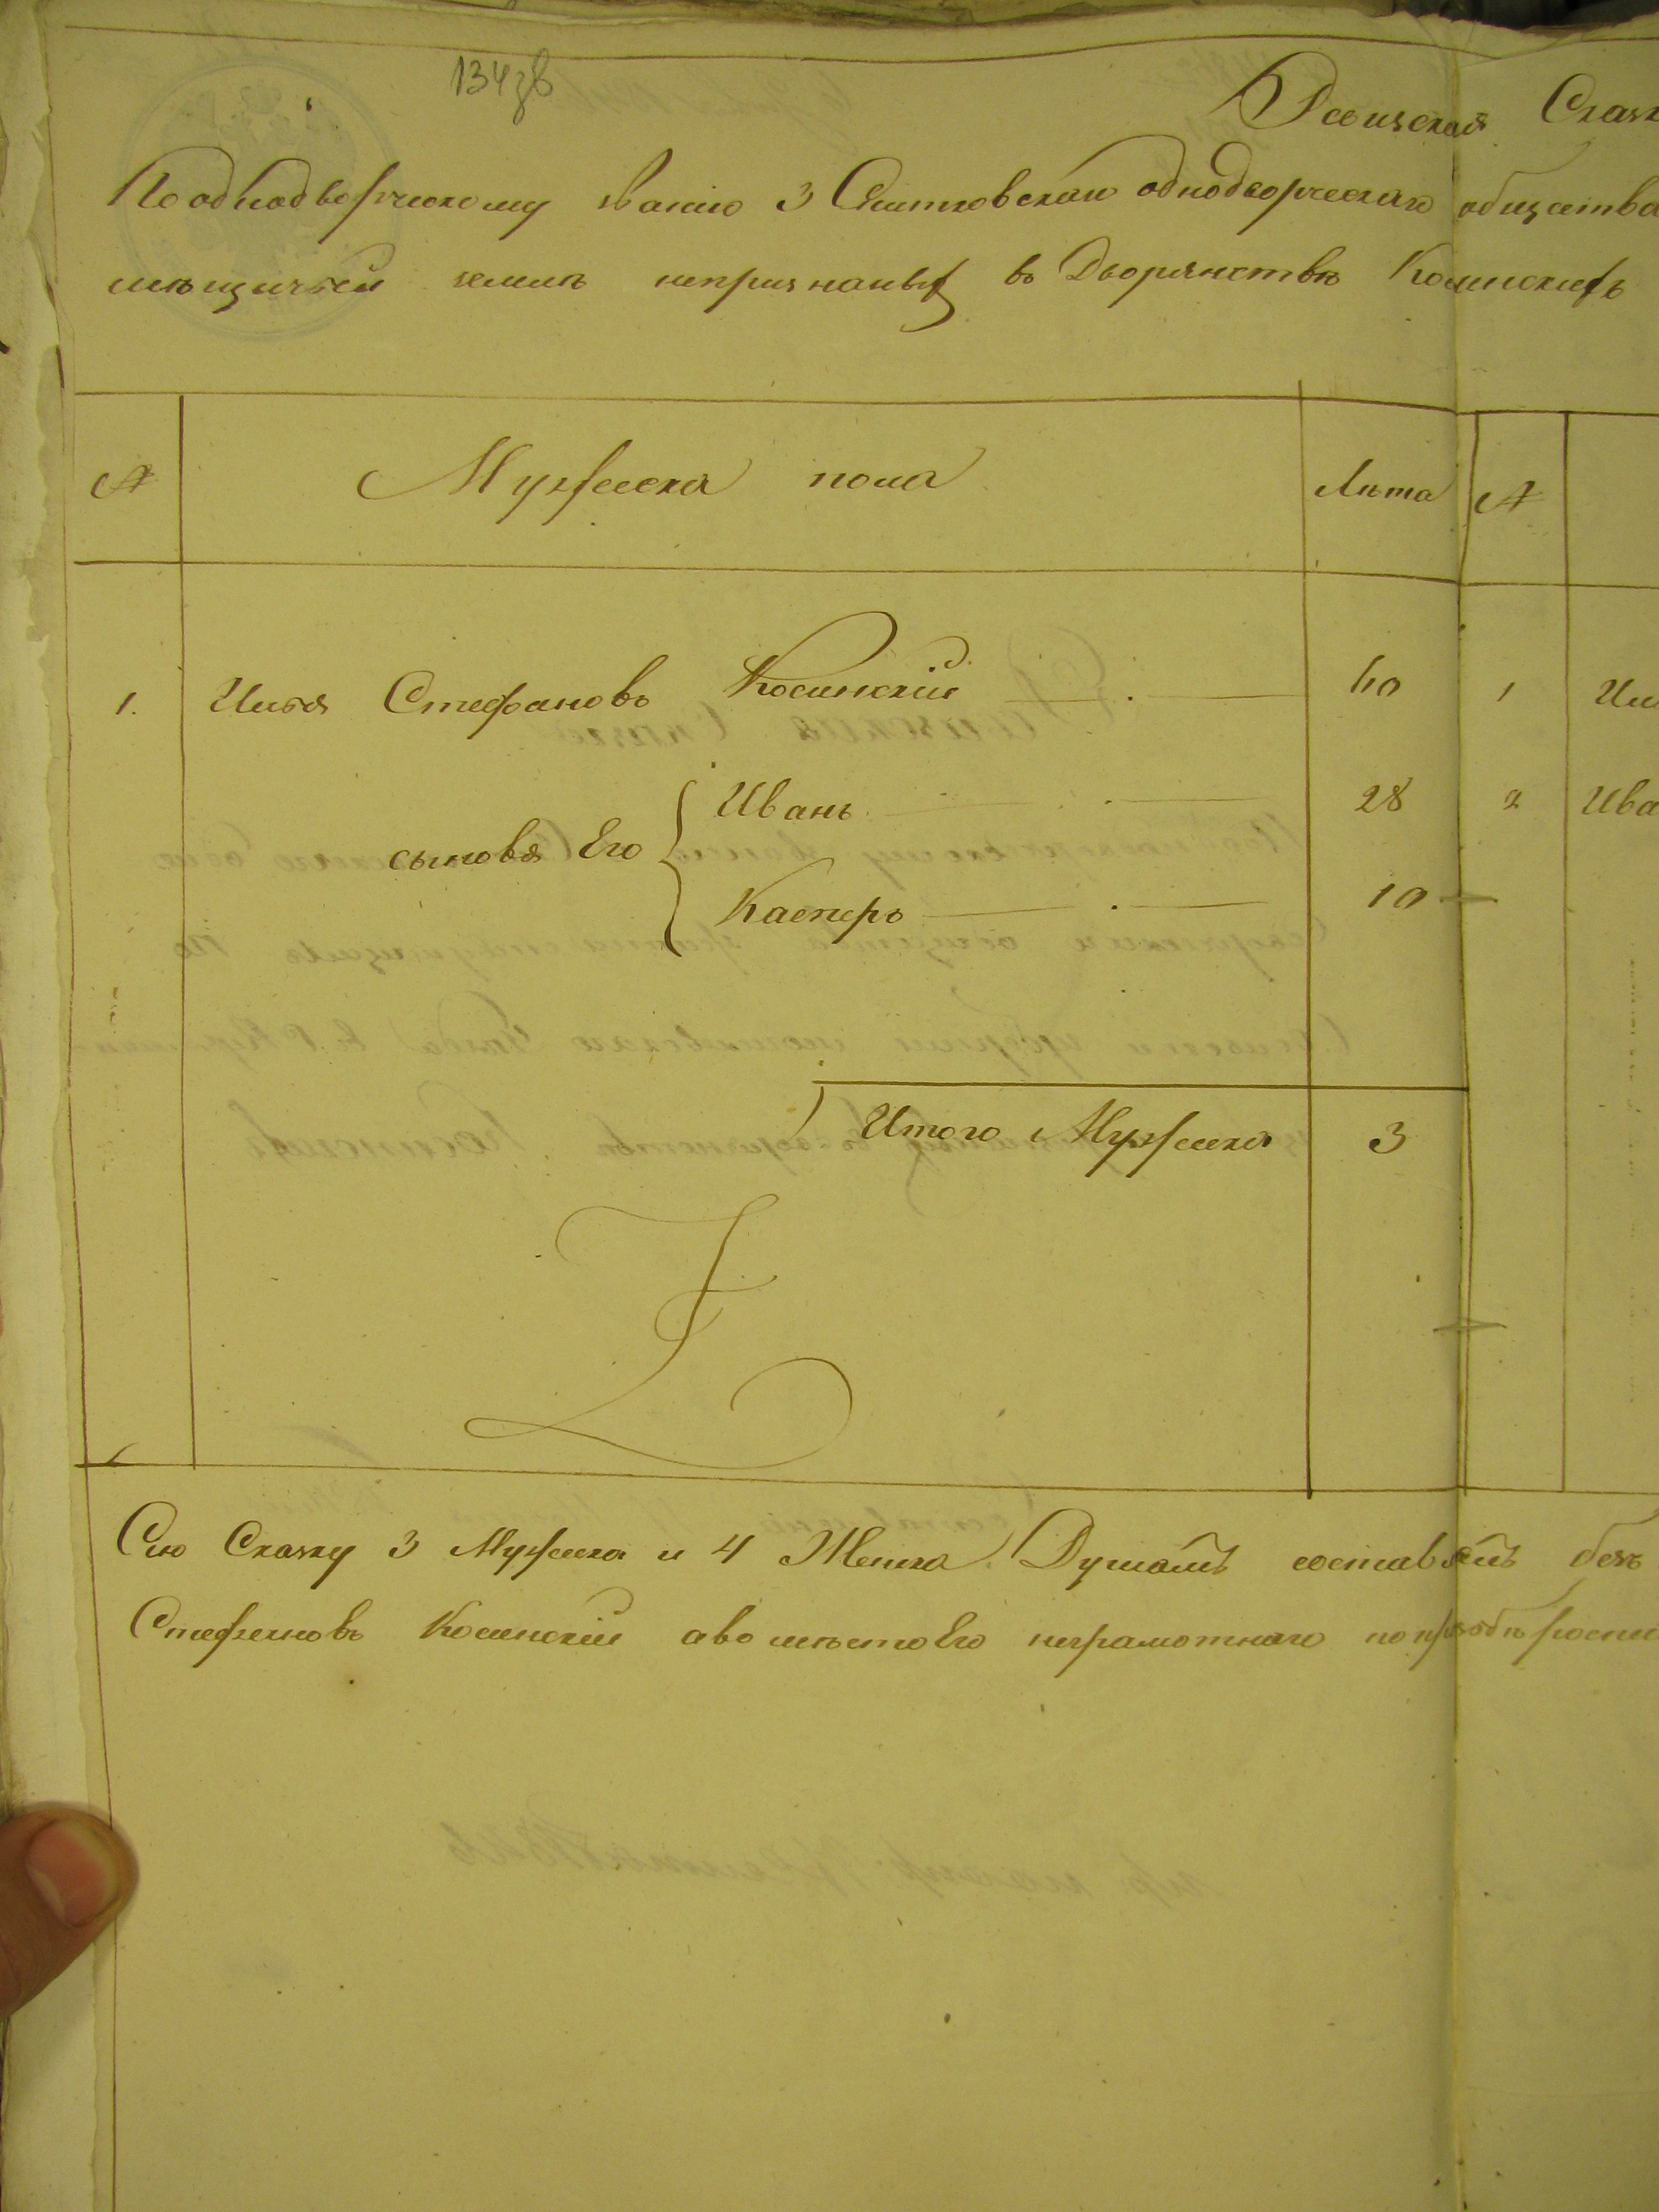 134зв
Ревизская Сказк
По однодворческому званію 3 однодворческаго общества
помѣщичьей землѣ непризнаных въ Дворянствѣ Косинскихъ
№ Мужеска пола Лѣта №
1. Илья Стефановъ Косинскій 60 1 Ил
сыновья Его Иванъ 28 2 Ива
Касперъ 10
Итого Мужеска 3
Сію Сказку 3 Мужеска и 4 Женска Душамъ составилъ безъ
Стефановъ Косинскій а во мѣсто Его неграмотнаго по прозбѣ роспи